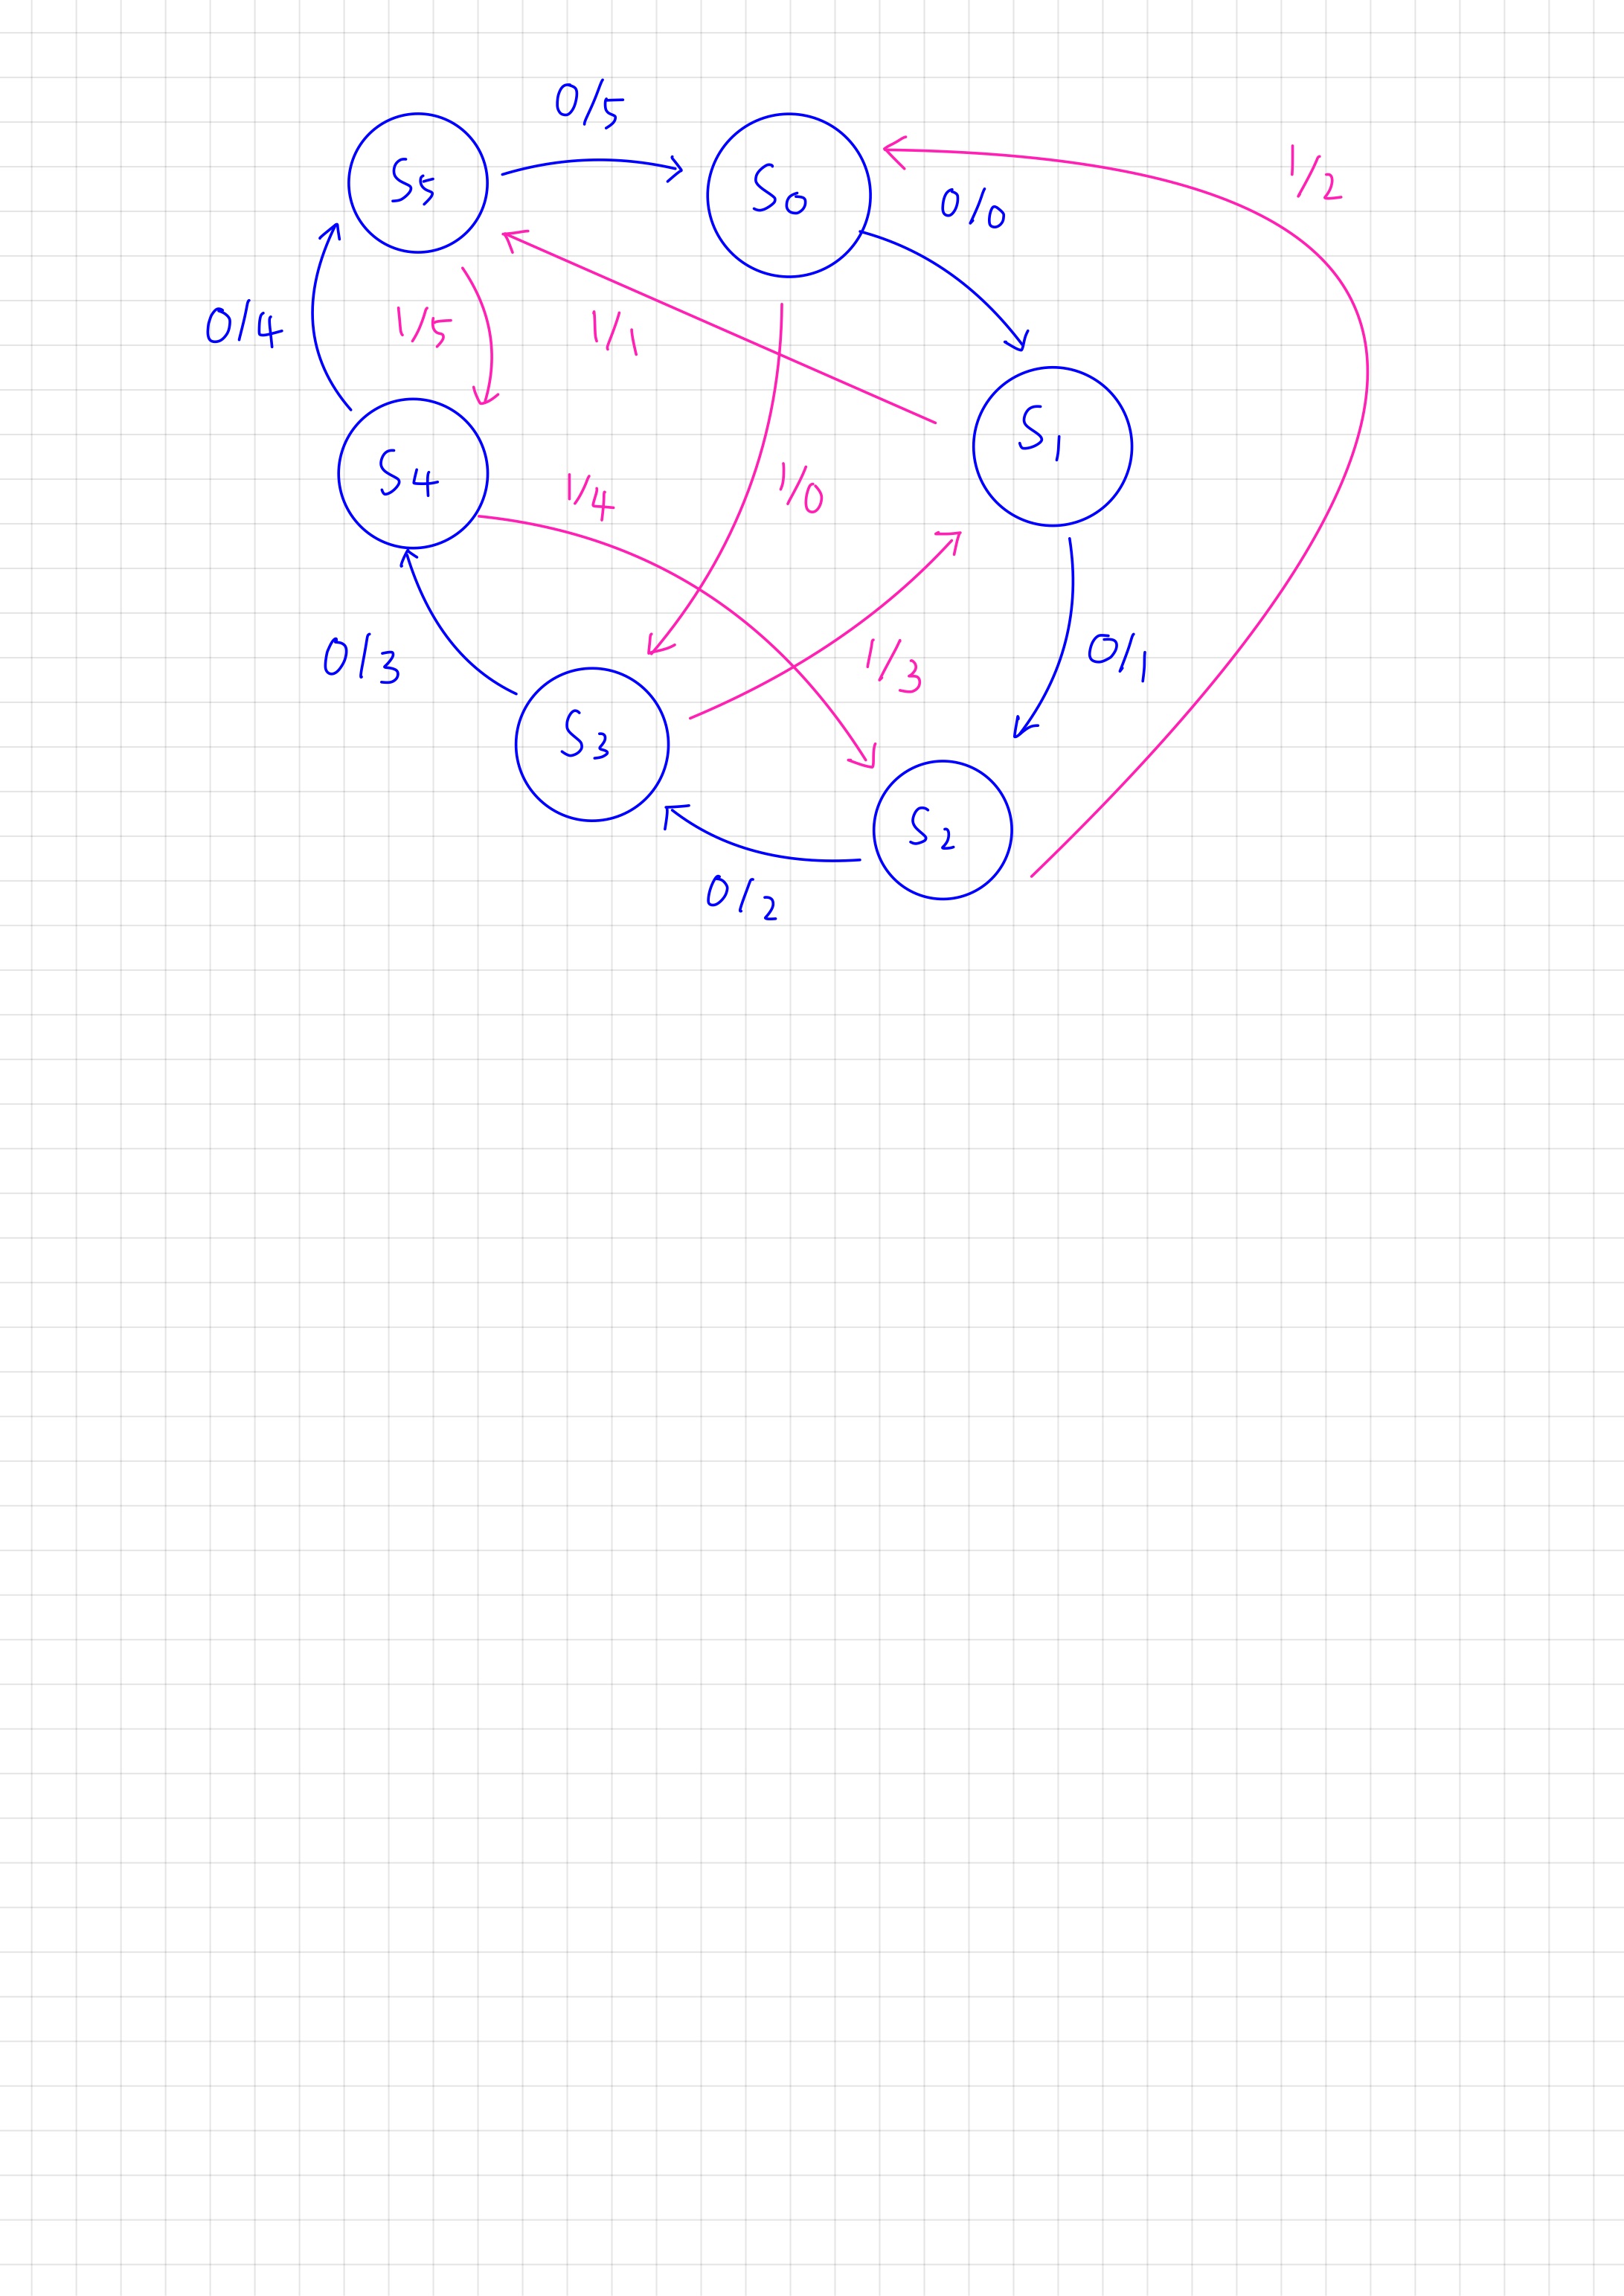 0/5
S5
S0
0/0
1/2
0/4
1/5
1/1
S1
S4
1/4
1/0
0/3
1/3
0/1
S3
S2
0/2